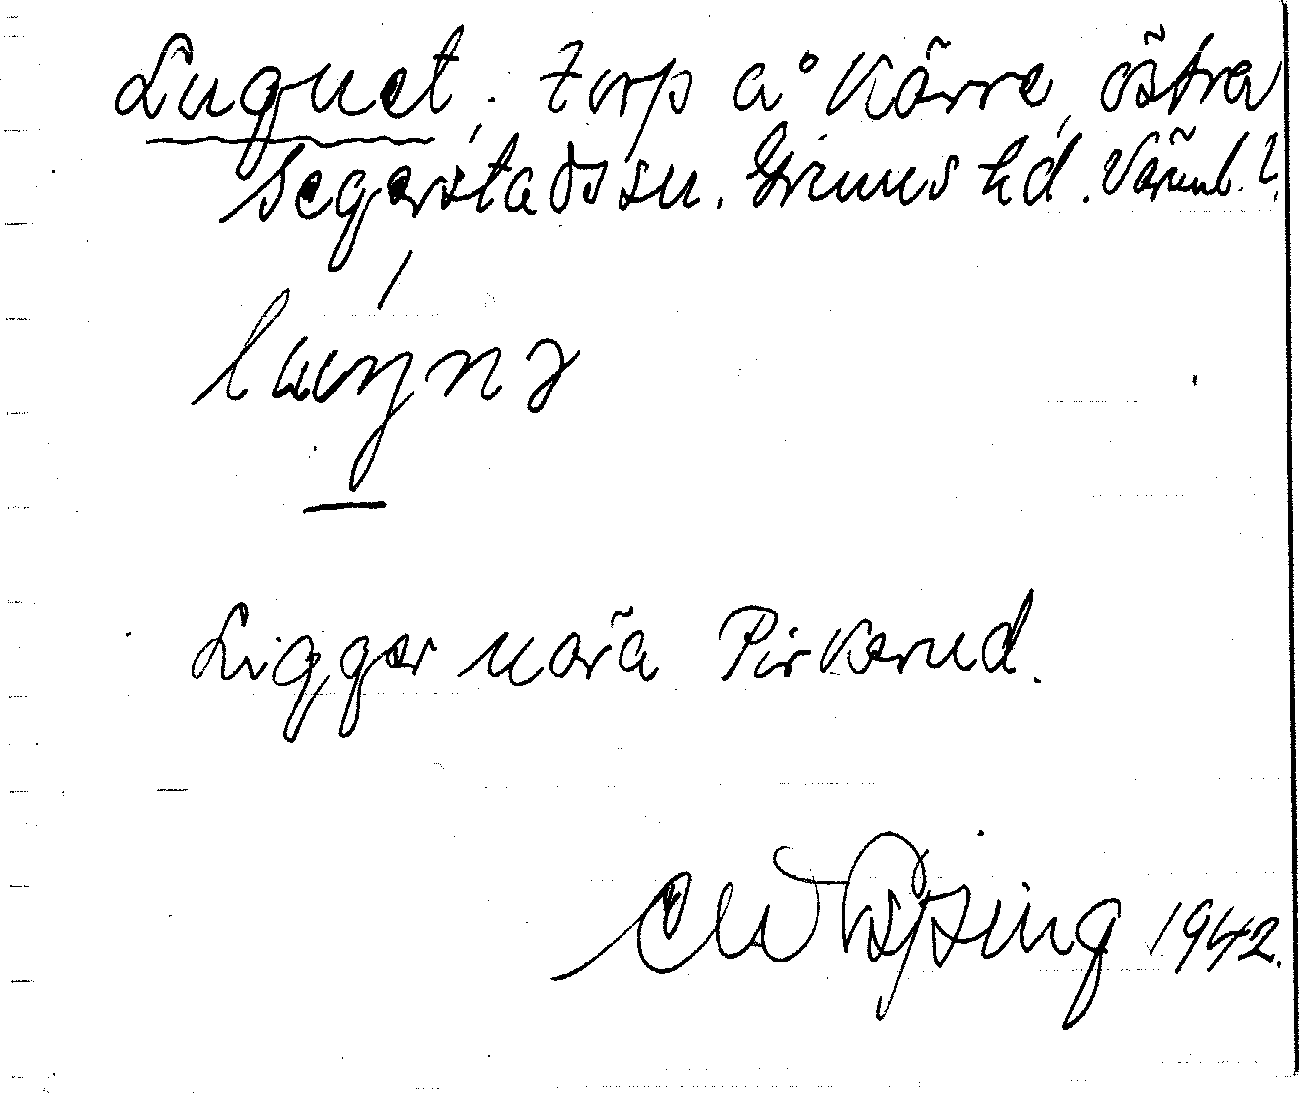 Lugnet, torp å Kärre, östra
Segerstads sn. Grums hd. Värml.
Ligger nära Pirkerud.
1942.